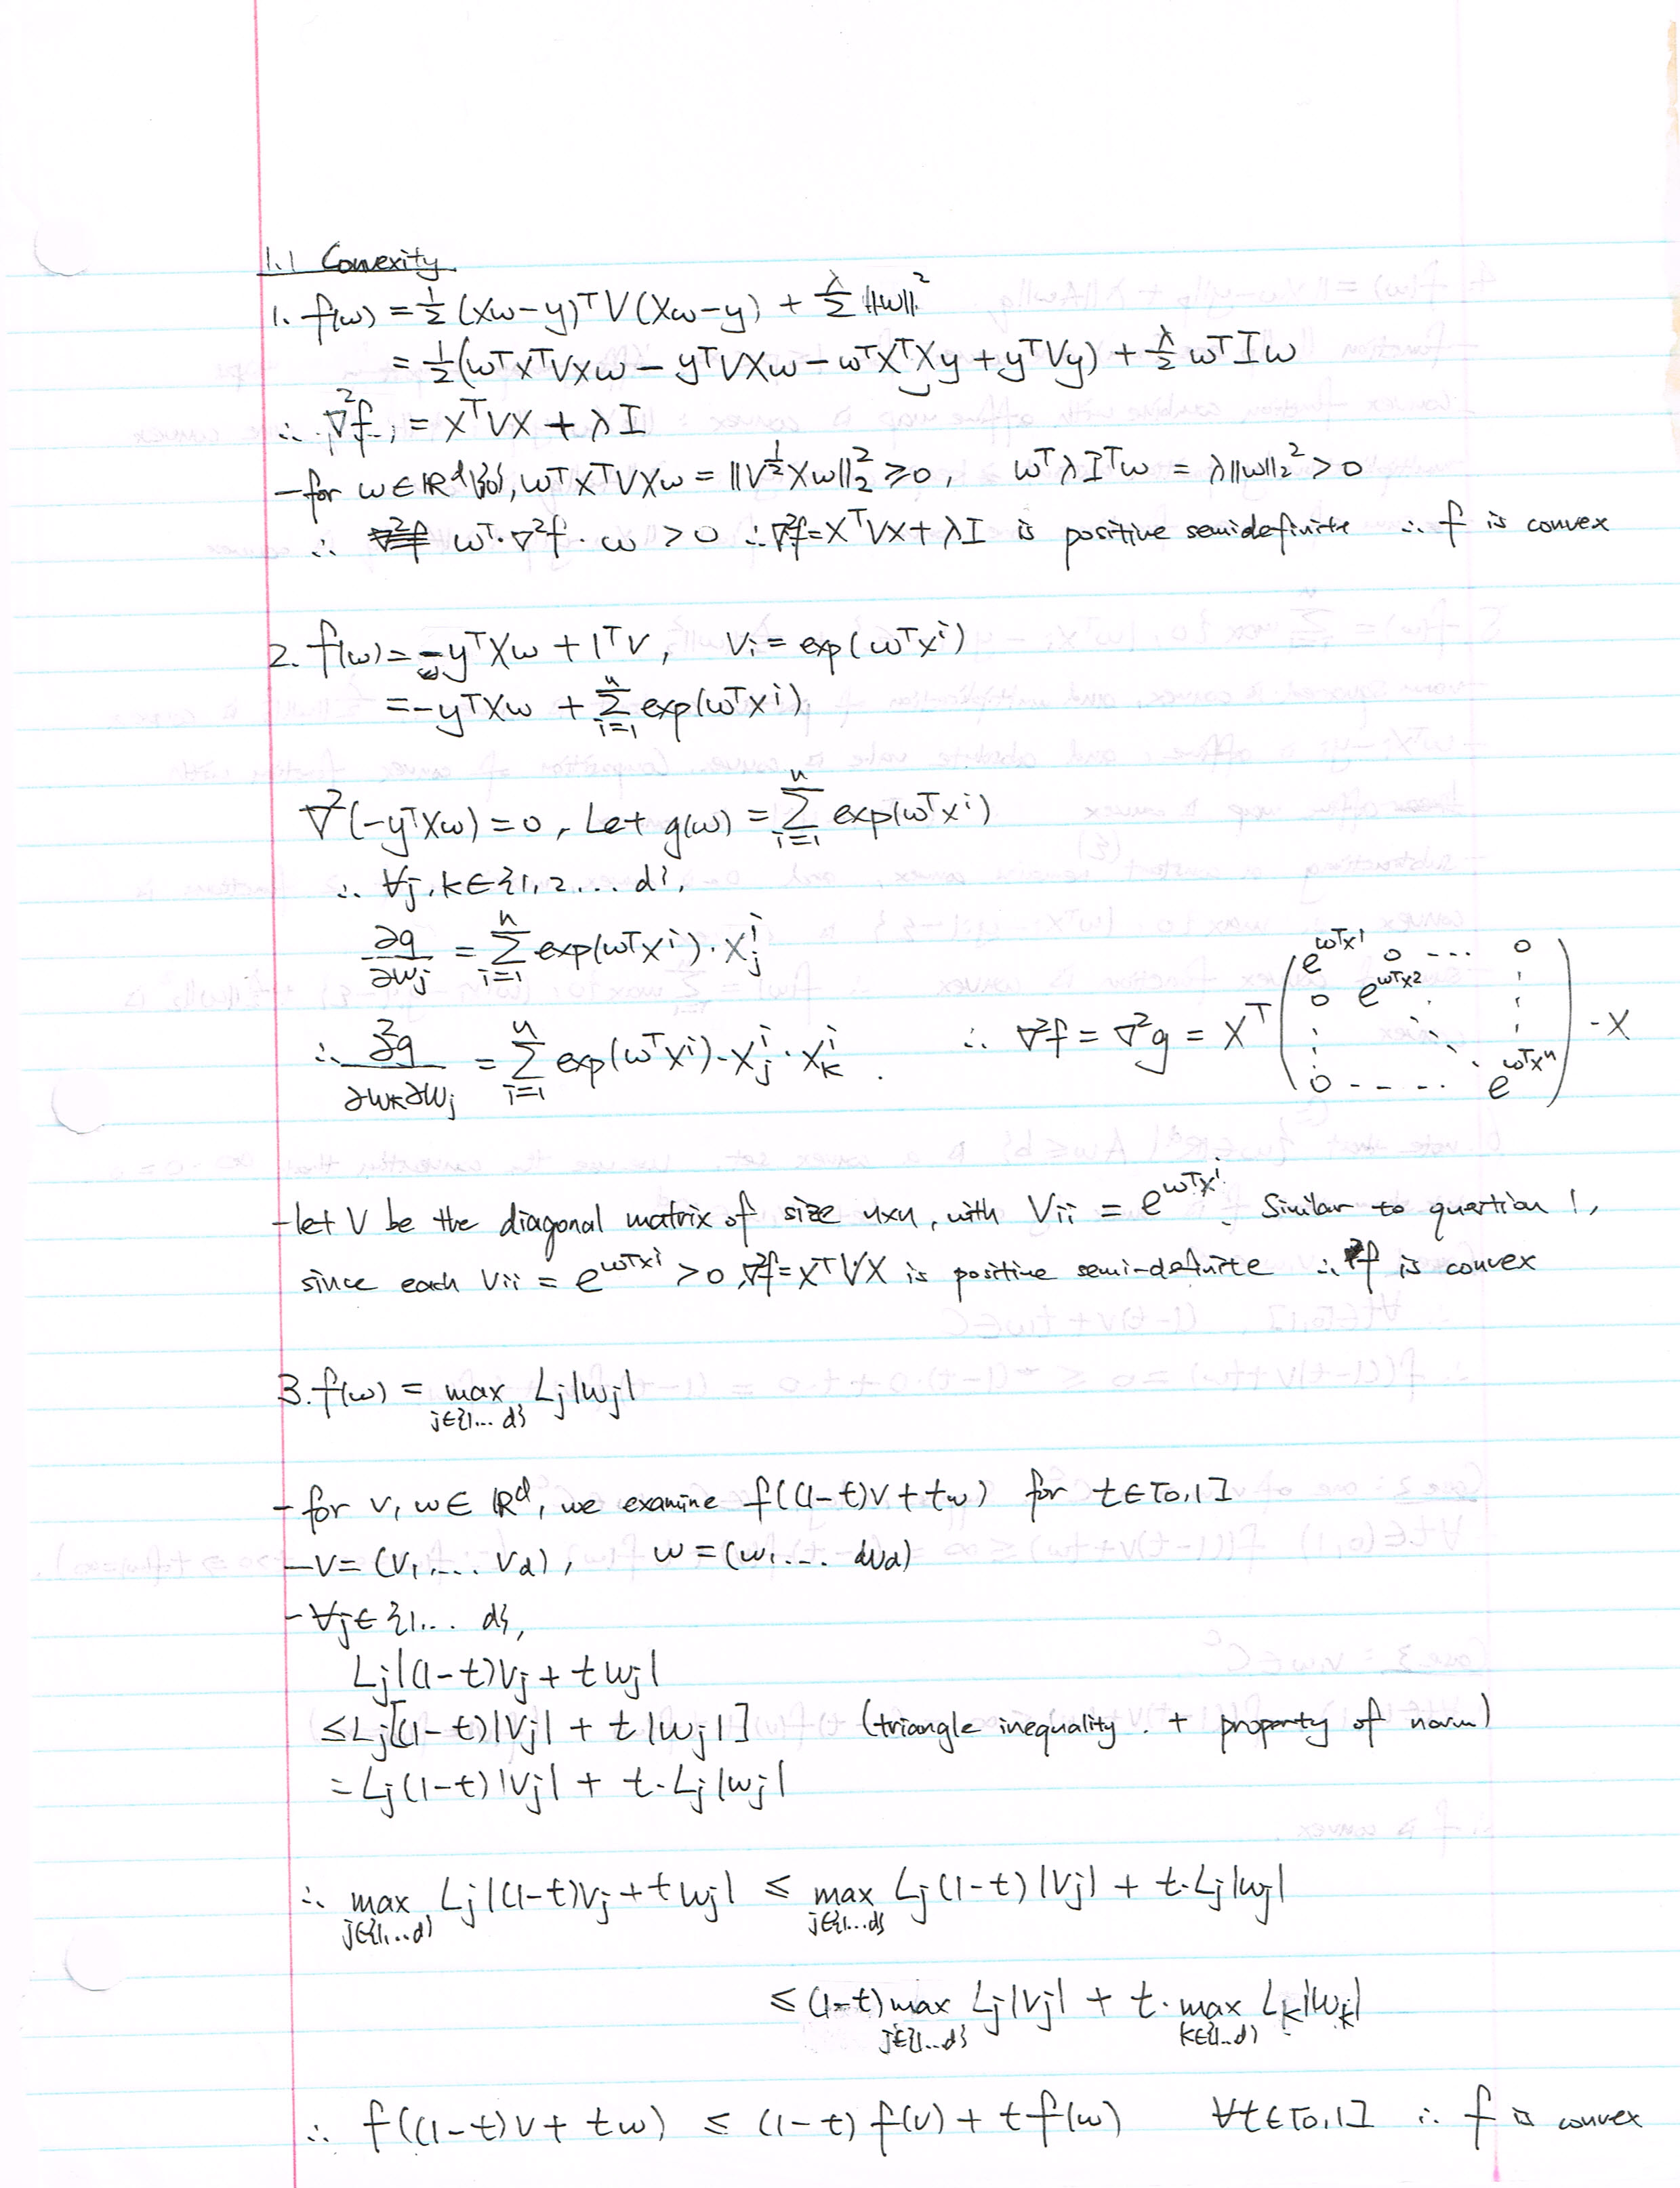 1.1 Convexity
1. f(w) = ½ (Xw-y)ᵀV(Xw-y) + λ/2 ||w||²
= ½(wᵀXᵀVXw - yᵀVXw - wᵀXᵀXy + yᵀVy) + λ/2 wᵀIw
∴ ∇²f = XᵀVX + λI
- for w∈ℝᵈ\{0}, wᵀXᵀVXw = ||V^½Xw||₂² ≥ 0, wᵀλIᵀw = λ||w||₂² > 0
∴ wᵀ·∇²f·w > 0 ∴ ∇²f = XᵀVX + λI is positive semidefinite ∴ f is convex
2. f(w) = -yᵀXw + 1ᵀV, Vi = exp(wᵀxⁱ)
= -yᵀXw + Σ_{i=1}^n exp(wᵀxⁱ)
∇²(-yᵀXw) = 0, Let g(w) = Σ_{i=1}^n exp(wᵀxⁱ)
∴ ∀j,k∈{1,2...d},
∂g/∂wj = Σ_{i=1}^n exp(wᵀxⁱ)·xⁱ_j
∴ ∂²g/∂wk∂wj = Σ_{i=1}^n exp(wᵀxⁱ)·xⁱ_j·xⁱ_k. ∴ ∇²f = ∇²g = Xᵀ ( e^{wᵀx¹} 0 ... 0
0 e^{wᵀx²}
0 ---- e^{wᵀxⁿ} ) · X
- let V be the diagonal matrix of size n×n, with Vii = e^{wᵀxⁱ}. Similar to question 1,
since each Vii = e^{wᵀxⁱ} > 0, ∇²f = XᵀVX is positive semi-definite ∴ f is convex
3. f(w) = max_{j∈{1...d}} Lj|wj|
- for v, w ∈ ℝᵈ, we examine f((1-t)v + tw) for t∈[0,1]
- v = (v1,... vd), w = (w1... wd)
- ∀j∈{1... d},
Lj|(1-t)vj + twj|
≤ Lj[(1-t)|vj| + t|wj|] (triangle inequality. + property of norm)
= Lj(1-t)|vj| + t·Lj|wj|
∴ max_{j∈{1...d}} Lj|(1-t)vj + twj| ≤ max_{j∈{1...d}} Lj(1-t)|vj| + t·Lj|wj|
≤ (1-t) max_{j∈{1...d}} Lj|vj| + t·max_{k∈{1...d}} Lk|wk|
∴ f((1-t)v + tw) ≤ (1-t)f(v) + tf(w) ∀t∈[0,1] ∴ f is convex